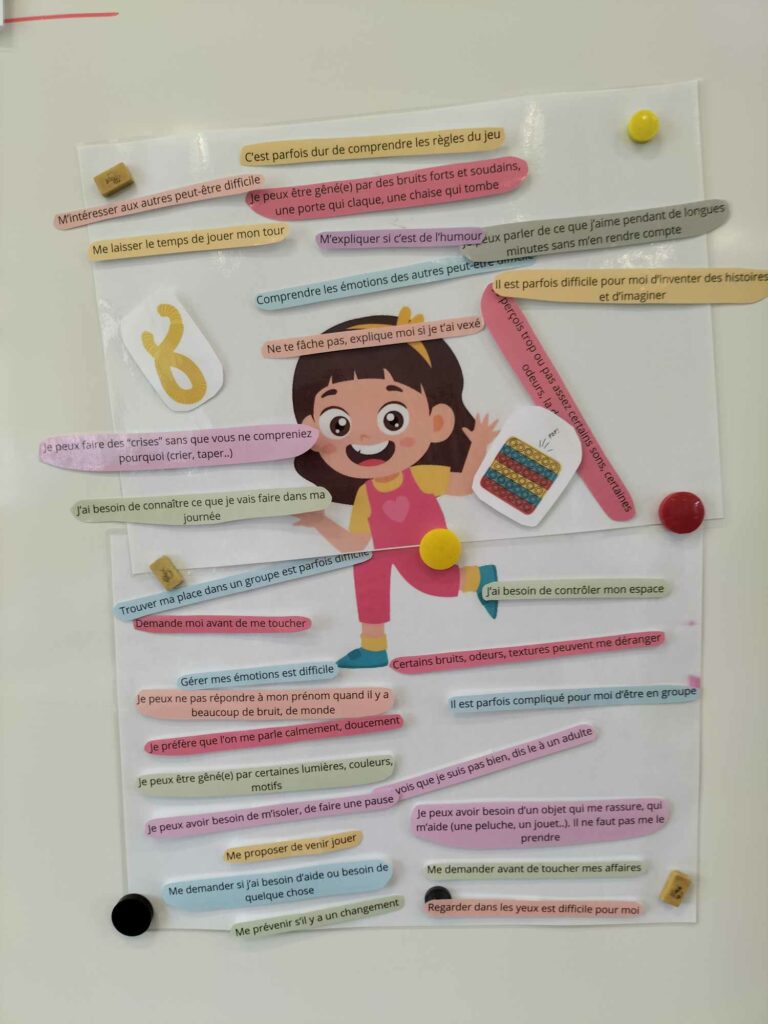 C'est parfois dur de comprendre les règles du jeu
M'intéresser aux autres peut-être difficile
Je peux être gêné(e) par des bruits forts et soudains,
une porte qui claque, une chaise qui tombe
Me laisser le temps de jouer mon tour
M'expliquer si c'est de l'humour
peux parler de ce que j'aime pendant de longues
minutes sans m'en rendre compte
Comprendre les émotions des autres peut-être difficile
Il est parfois difficile pour moi d'inventer des histoires
et d'imaginer
perçois trop ou pas assez certains sons, certaines
odeurs, la
Ne te fâche pas, explique moi si je t'ai vexé
Je peux faire des "crises" sans que vous ne compreniez
pourquoi (crier, taper..)
J'ai besoin de connaître ce que je vais faire dans ma
journée
Trouver ma place dans un groupe est parfois difficile
J'ai besoin de contrôler mon espace
Demande moi avant de me toucher
Certains bruits, odeurs, textures peuvent me déranger
Gérer mes émotions est difficile
Je peux ne pas répondre à mon prénom quand il y a
beaucoup de bruit, de monde
Il est parfois compliqué pour moi d'être en groupe
Je préfère que l'on me parle calmement, doucement
Je peux être gêné(e) par certaines lumières, couleurs,
motifs
vois que je suis pas bien, dis le à un adulte
Je peux avoir besoin de m'isoler, de faire une pause
Je peux avoir besoin d'un objet qui me rassure, qui
m'aide (une peluche, un jouet..). Il ne faut pas me le
prendre
Me proposer de venir jouer
Me demander si j'ai besoin d'aide ou besoin de
quelque chose
Me demander avant de toucher mes affaires
Me prévenir s'il y a un changement
Regarder dans les yeux est difficile pour moi